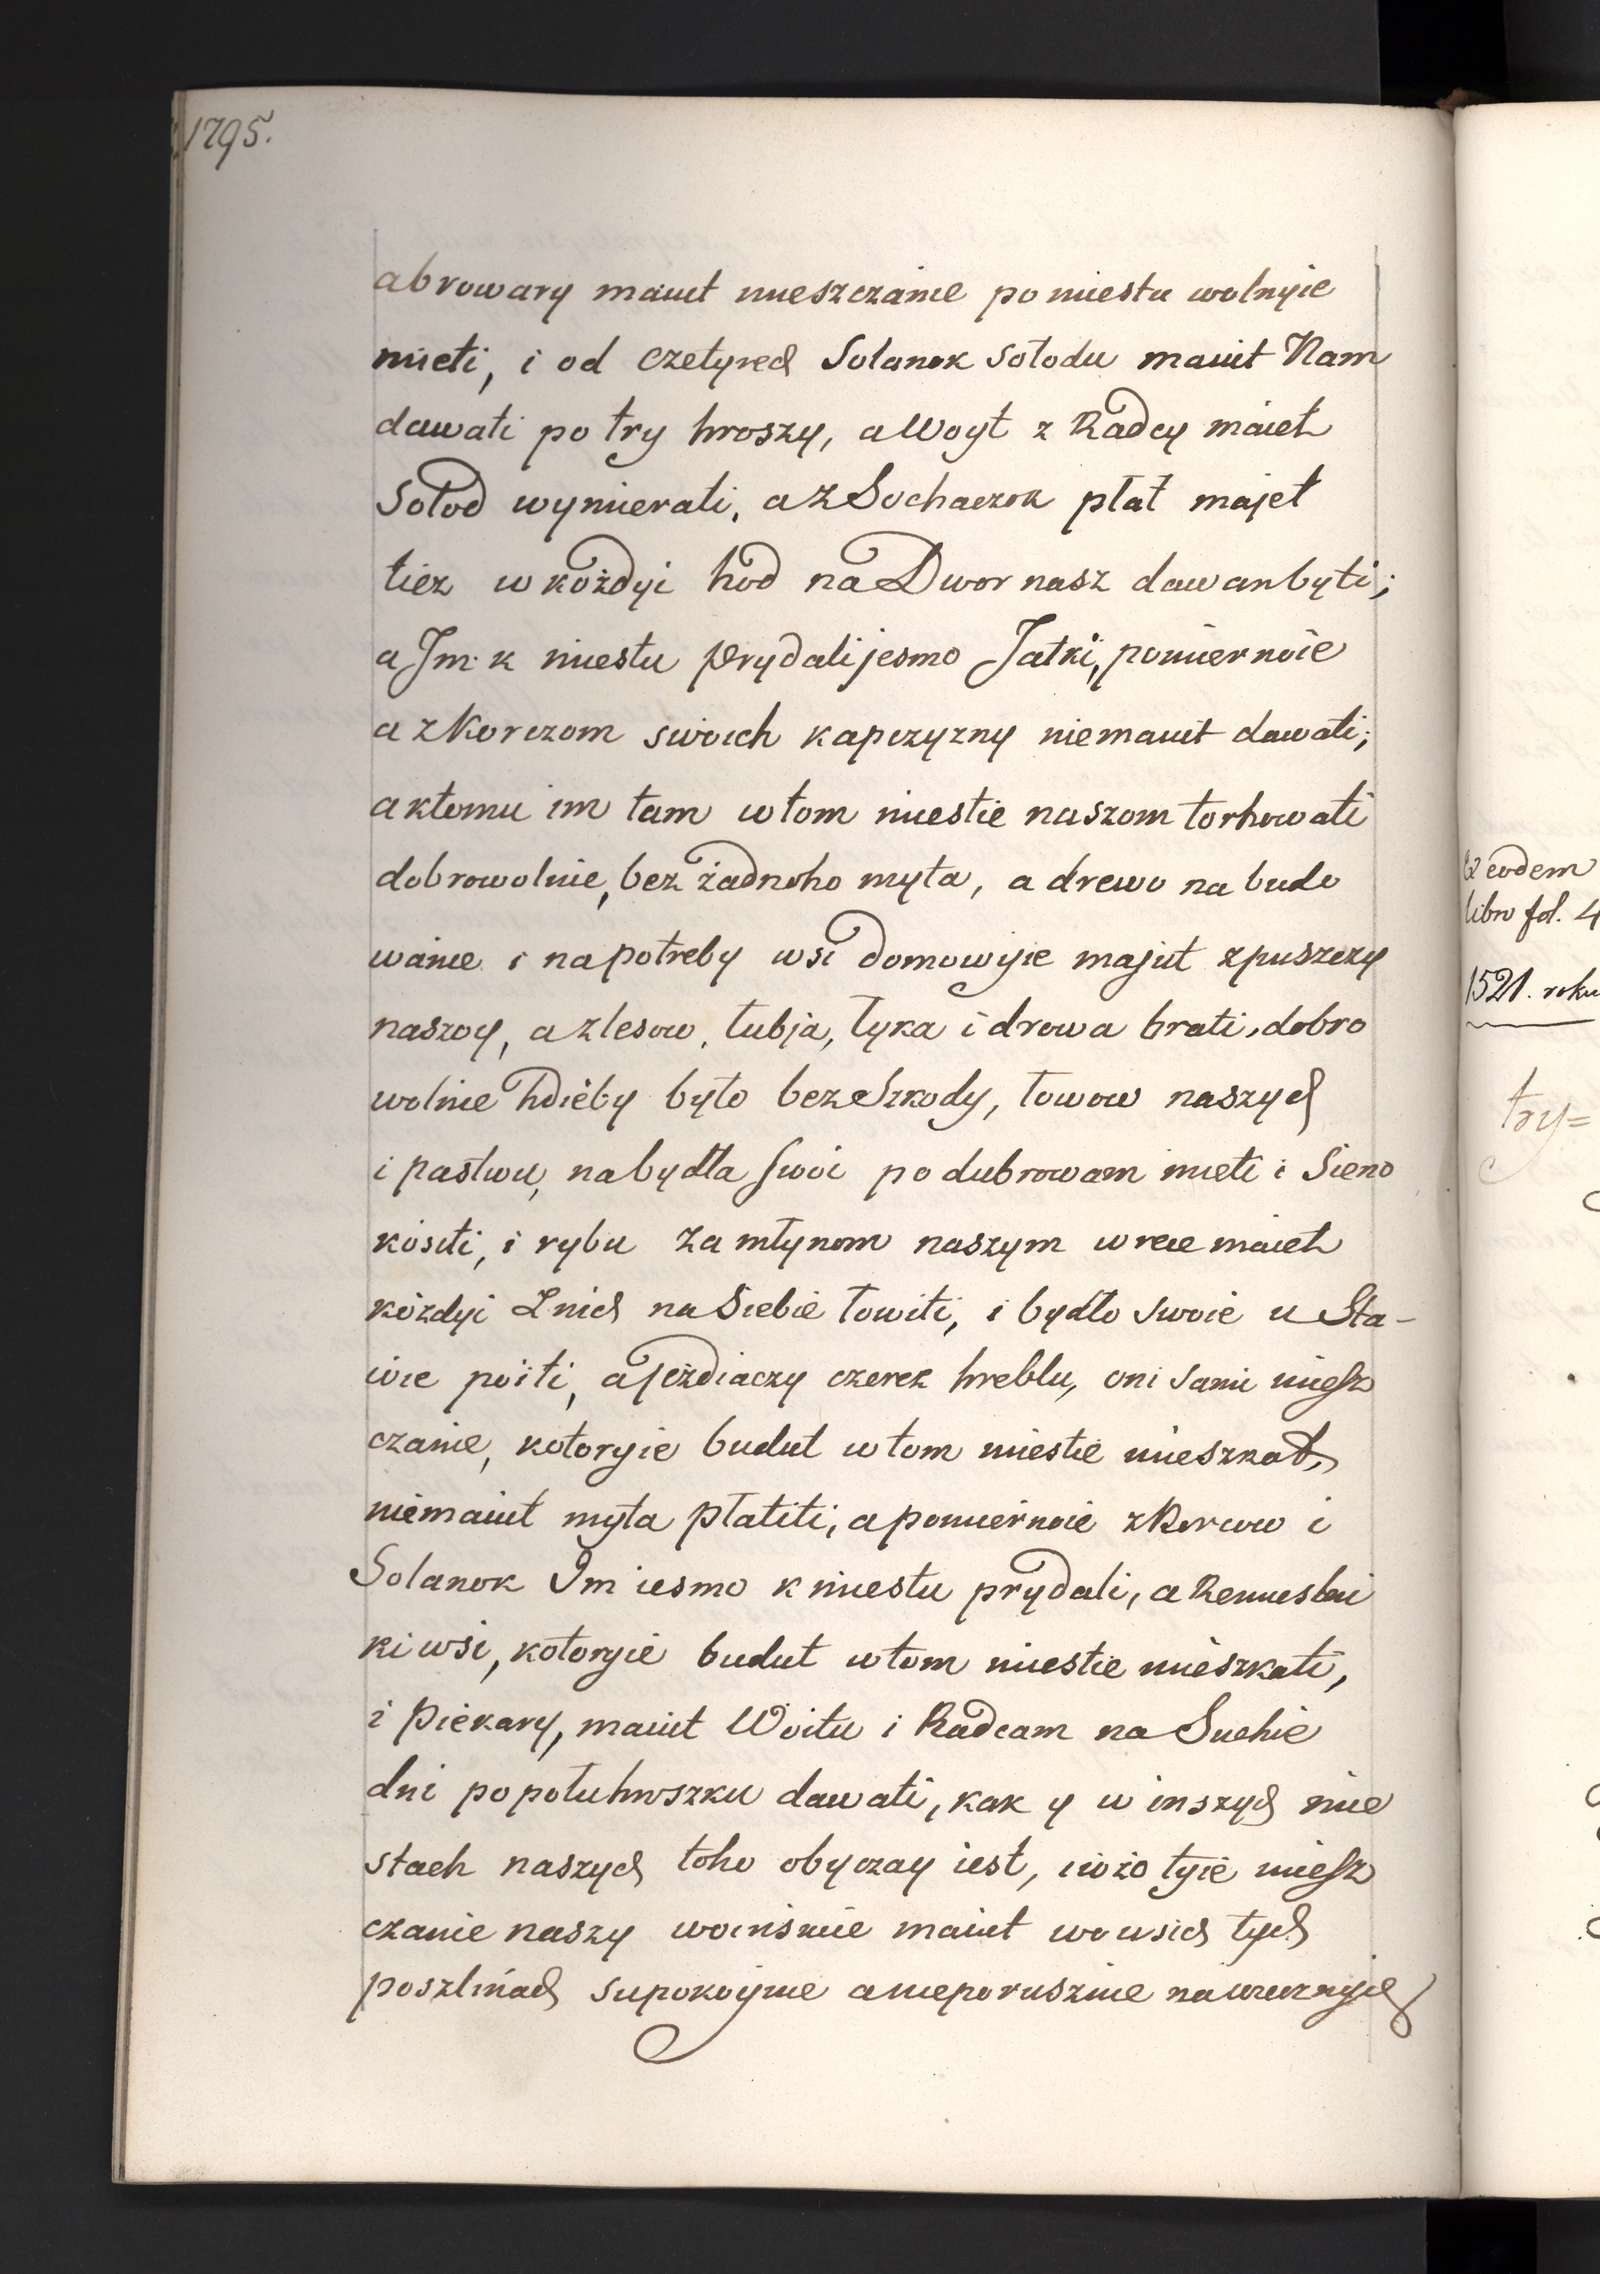 1795.
a browary maiut mieszczanie po miestu wolnyie
mieti, i od czetyrech Solanok sołodu maiut Nam
dawati po try hroszy, a Woyt z Radcy maieth
Sołod wymierati, a z Sochaczok płat majet
tież w kożdyi hod na Dwor nasz dawan byti;
a Im k miestu prydali jesmo Jatki, pomiernoie
a z Korczom swoich kapczyzny niemaiut dawati;
a ktomu im tam w tom miestie naszom torhowati
dobrowolnie, bez żadnoho myta, a drewo na budo
wanie i na potreby wsi domowyie majut z puszczy
naszoy, a z lesow, łubja, łyka i drowa brati, dobro
wolnie hdieby było bez Szkody, łowow naszych
i pastwu, na bydła swoi po dubrowam mieti i Sieno
kositi, i rybu za młynom naszym w rece maieth
kożdyi Znich na Siebie łowiti, i bydło swoie u Sta-
wie poiti, a jeżdiaczy czerez hreblu, oni sami miesz
czanie, kotoryie budut w tom miestie mieszkat,
niemaiut myta płatiti, a pomiernoie z Korcow i
Solanok Im iesmo k miestu prydali, a Remiesłni
ki wsi, kotoryie budut w tom miestie mieszkati,
i Piekary, maiut Woitu i Radcam na Suchie
dni po połuhroszku dawati, kak y w inszych mie
stach naszych toho obyczay iest, iożo tyie miesz
czanie naszy woinskie maiut wo wsich tych
poszlinach supokoynie a nieporusznie na wiecznyie
Ex eodem
libro fol. 4
1521. roku
try=